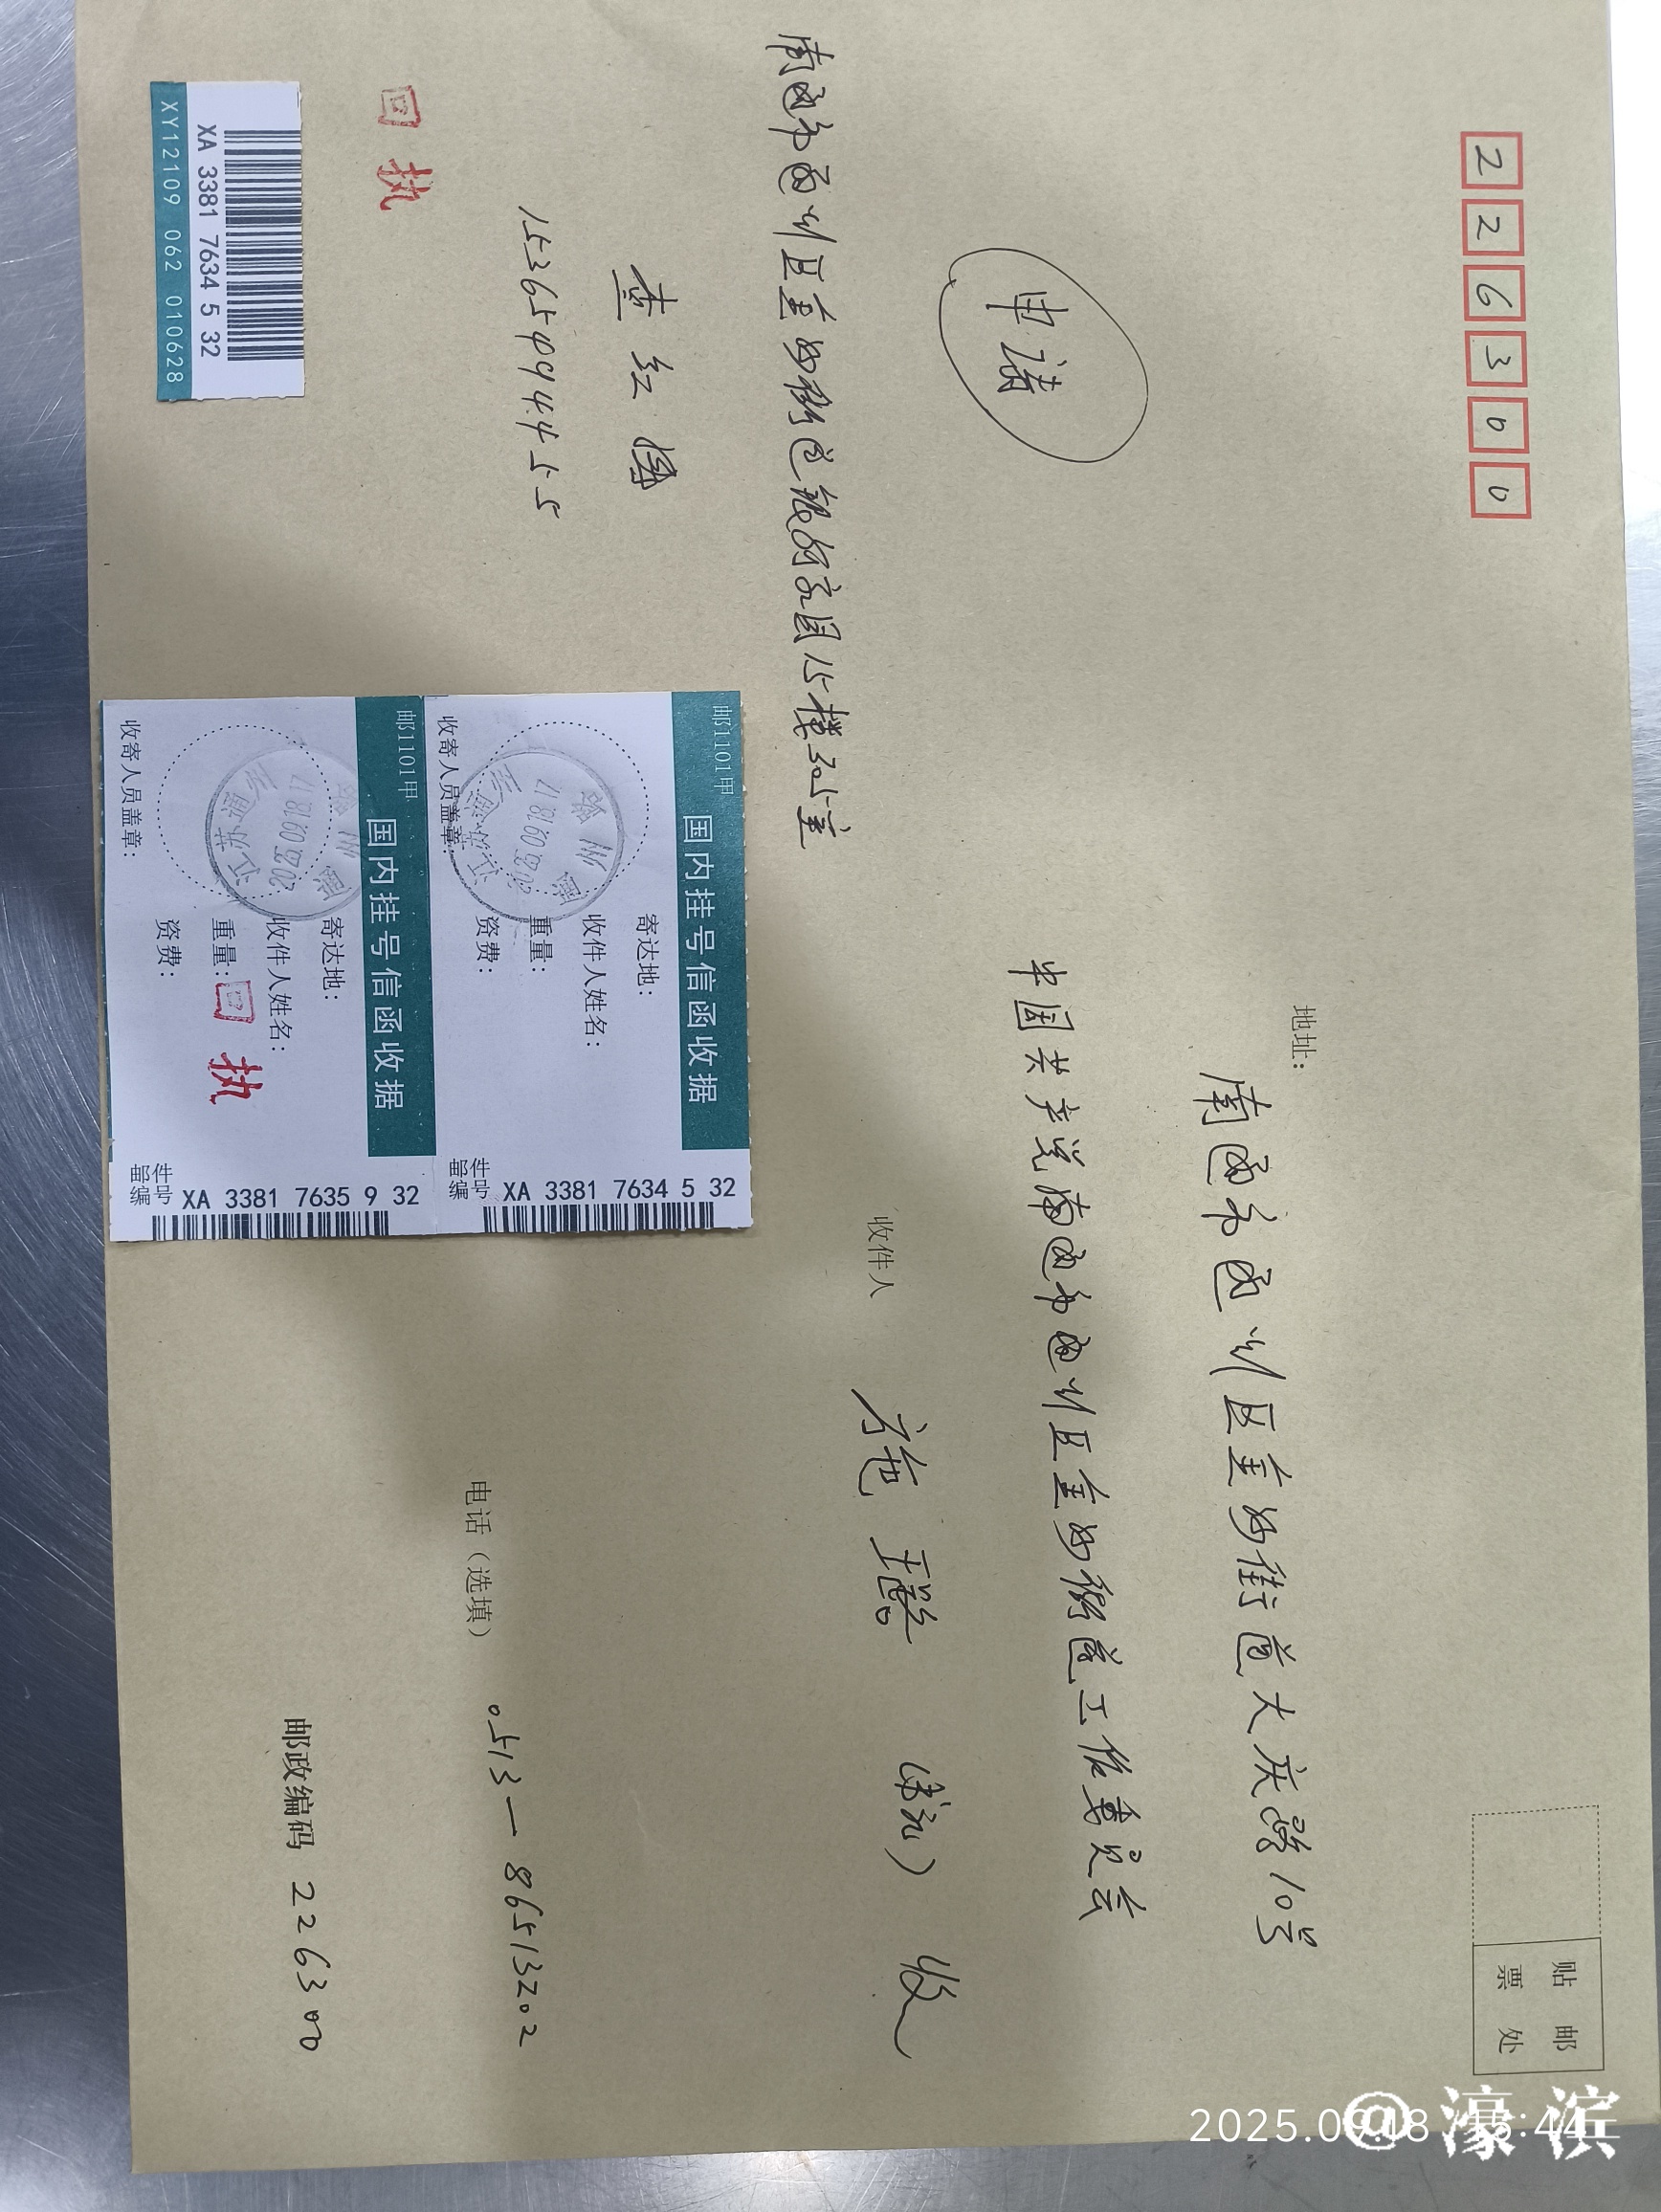 226300
贴邮
票处
地址：
南通市通川区金沙街道大庆路10号
申请
中国共产党南通市通川区金沙街道工作委员会
南通市通川区金沙街道银河家园15楼305室
收件人
施璐 (书记) 收
查红梅
15365099455
电话（选填）
0513-86513202
邮政编码 226300
回执
XA 3381 7634 5 32
XY12109 062 010628
邮1101甲
国内挂号信函收据
寄达地：
收件人姓名：
重量：
资费：
收寄人员盖章：
邮件编号 XA 3381 7634 5 32
邮1101甲
国内挂号信函收据
寄达地：
收件人姓名：
重量：
回执
资费：
收寄人员盖章：
邮件编号 XA 3381 7635 9 32
2025.09.18 15:44
@濠滨